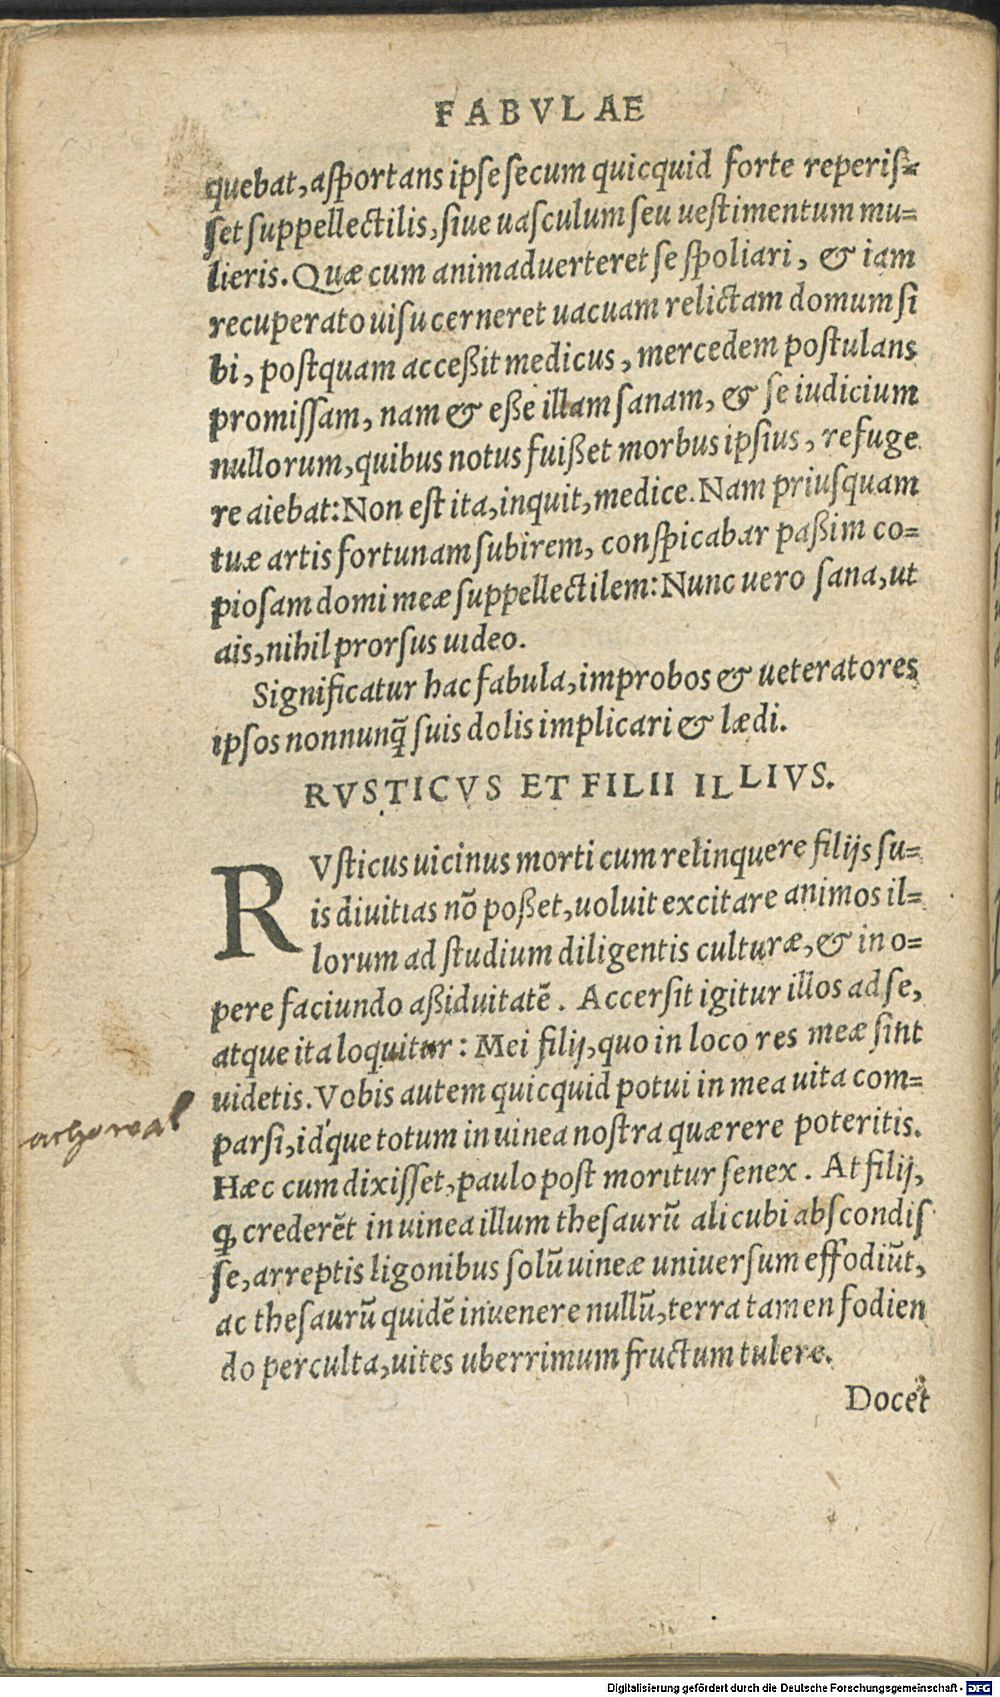 FABVLAE
quebat, asportans ipse secum quicquid forte reperis-
set suppellectilis, siue uasculum seu uestimentum mu-
lieris. Quæ cum animaduerteret se spoliari, & iam
recuperato uisu cerneret uacuam relictam domum si
bi, postquam acceßit medicus, mercedem postulans
promissam, nam & eße illam sanam, & se iudicium
nullorum, quibus notus fuißet morbus ipsius, refuge
re aiebat: Non est ita, inquit, medice. Nam priusquam
tuæ artis fortunam subirem, conspicabar paßim co-
piosam domi meæ suppellectilem: Nunc uero sana, ut
ais, nihil prorsus uideo.
Significatur hac fabula, improbos & ueteratores
ipsos nonnunq̃ suis dolis implicari & lædi.
RVSTICVS ET FILII ILLIVS.
RVsticus uicinus morti cum relinquere filijs su-
is diuitias nõ poßet, uoluit excitare animos il-
lorum ad studium diligentis culturæ, & in o-
pere faciundo aßiduitatẽ. Accersit igitur illos ad se,
atque ita loquitur: Mei filij, quo in loco res meæ sint
uidetis. Vobis autem quicquid potui in mea uita com-
parsi, id'que totum in uinea nostra quærere poteritis.
Hæc cum dixisset, paulo post moritur senex. At filij,
ꝗ crederẽt in uinea illum thesaurũ alicubi abscondis
se, arreptis ligonibus solũ uineæ uniuersum effodiũt,
ac thesaurũ quidẽ inuenere nullũ, terra tamen fodien
do perculta, uites uberrimum fructum tulere.
Docet
Digitalisierung gefördert durch die Deutsche Forschungsgemeinschaft - DFG